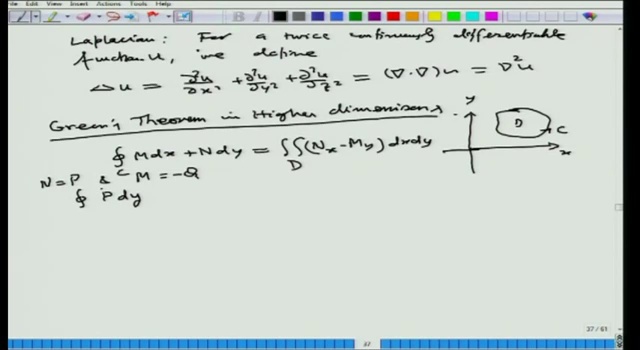 Edit View Insert Actions Tools Help
Laplacian: For a twice continuously differentiable
function u, we define
Δu = ∂²u/∂x² + ∂²u/∂y² + ∂²u/∂z² = (∇·∇)u = ∇²u
Green's Theorem in Higher dimensions
∮_C Mdx + Ndy = ∬_D (Nx - My) dxdy
y
D
C
x
N = P & M = -Q
∮ P dy
37 / 61
37